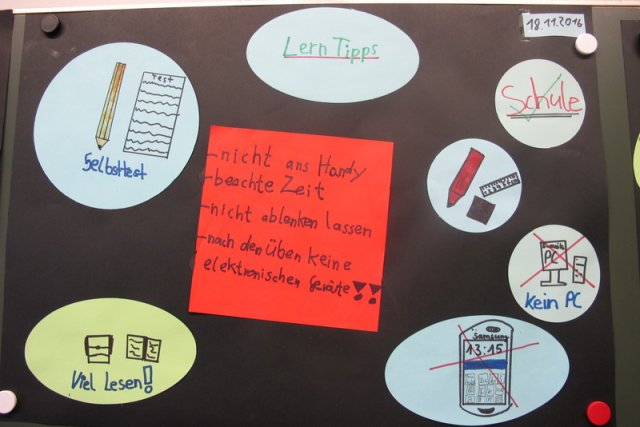 18.11.2016
LernTipps
Schule
Test
Selbsttest
-nicht ans Handy
-beachte Zeit
-nicht ablenken lassen
-nach den Üben keine
elektronischen Geräte!!
PC
Kein PC
Viel Lesen!
Samsung
13:15